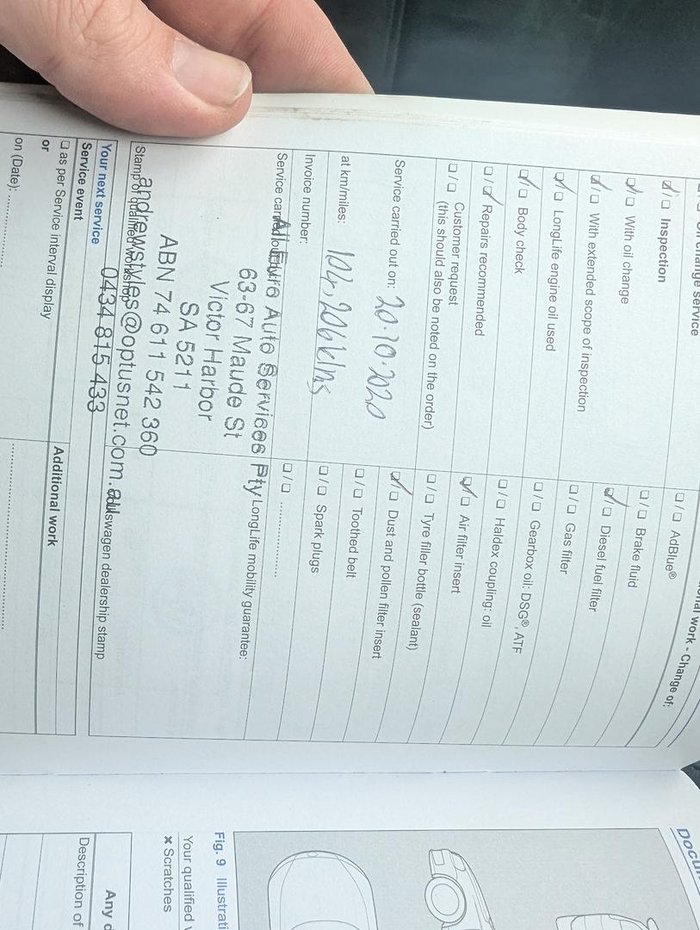 On change service
☑/☐ Inspection
☑/☐ With oil change
☑/☐ With extended scope of inspection
☑/☐ LongLife engine oil used
☑/☐ Body check
☐/☑ Repairs recommended
☐/☐ Customer request
(this should also be noted on the order)
Service carried out on: 20.10.2020
at km/miles: 124,206klms
Invoice number:
Service carried out by:
All Euro Auto Services Pty
63-67 Maude St
Victor Harbor
SA 5211
ABN 74 611 542 360
andrewstyles@optusnet.com.au
0434 815 433
Stamp of qualified workshop
Your next service
Service event
☐ as per Service interval display
or
on (Date):
work - Change of:
☐/☐ AdBlue®
☐/☐ Brake fluid
☑/☐ Diesel fuel filter
☐/☐ Gas filter
☐/☐ Gearbox oil: DSG®, ATF
☐/☐ Haldex coupling: oil
☑/☐ Air filter insert
☐/☐ Tyre filler bottle (sealant)
☑/☐ Dust and pollen filter insert
☐/☐ Toothed belt
☐/☐ Spark plugs
☐/☐
LongLife mobility guarantee:
Volkswagen dealership stamp
Additional work
Fig. 9 Illustrati
Your qualified
× Scratches
Any d
Description of